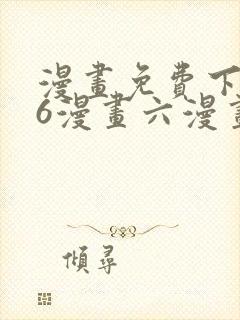 漫畫免費下
6漫畫六漫畫
傾尋